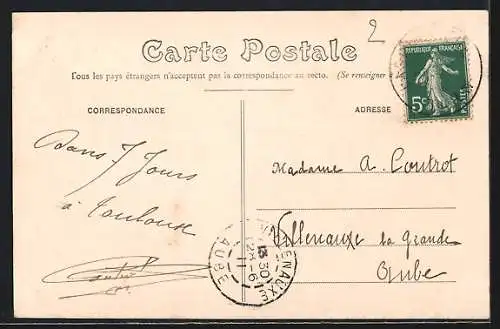 2
Carte Postale
Tous les pays étrangers n'acceptent pas la correspondance au recto. (Se renseigner à la
REPUBLIQUE FRANÇAISE
5c
POSTES
CORRESPONDANCE
ADRESSE
Dans 7 Jours
à Toulouse
Madame A. Coutrot
Villenauxe la Grande
Aube
VILLENAUXE
13 30
28 - 6
11
AUBE